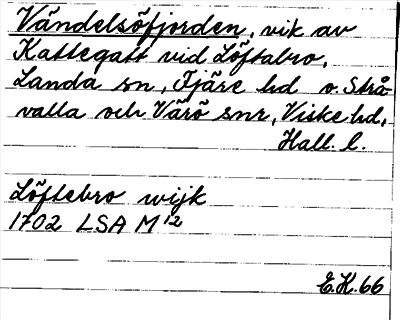 Vändelsöfjorden, vik av
Kattegatt vid Löftabro,
Landa sn, Fjäre hd o. Strå-
valla och Värö snr, Viske hd,
Hall. l.
Löftebro wijk
1702 LSA M 12
E.K. 66